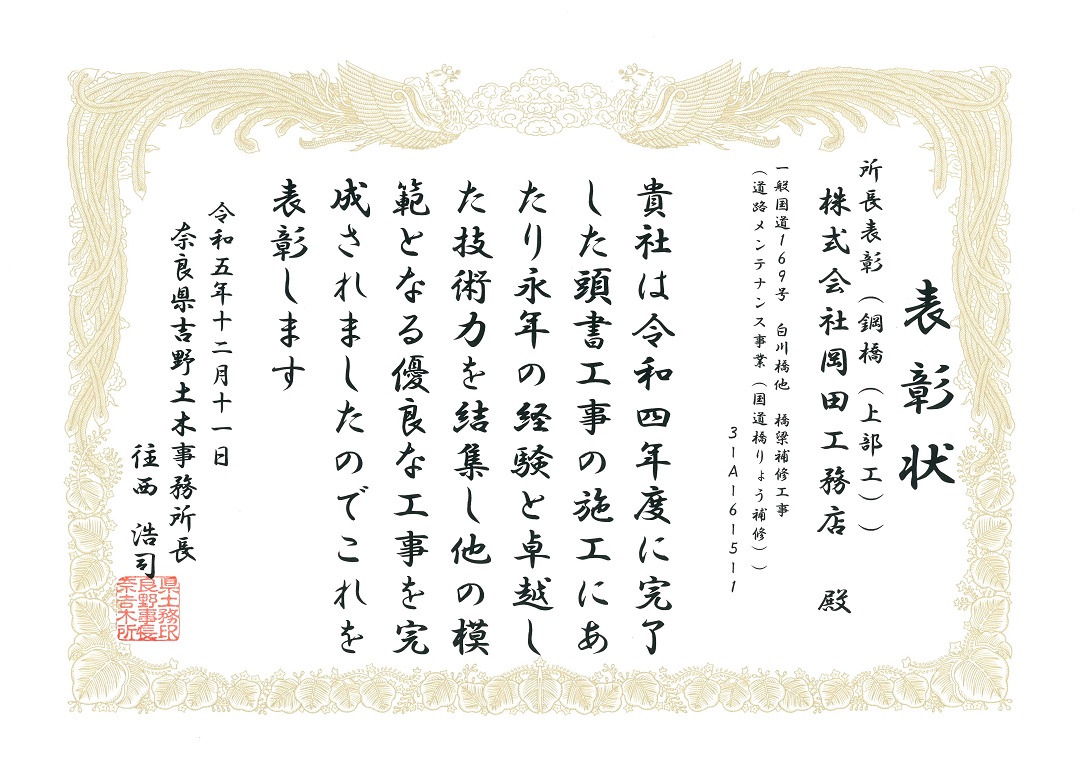 表彰状
所長表彰（鋼橋（上部工））
株式会社岡田工務店 殿
一般国道169号 白川橋他 橋梁補修工事
（道路メンテナンス事業（国道橋りょう補修））
31A1615-1
貴社は令和四年度に完了
した頭書工事の施工にあ
たり永年の経験と卓越し
た技術力を結集し他の模
範となる優良な工事を完
成されましたのでこれを
表彰します
令和五年十二月十一日
奈良県吉野土木事務所長
住西 浩司
県土務印
良野事長
奈吉木所